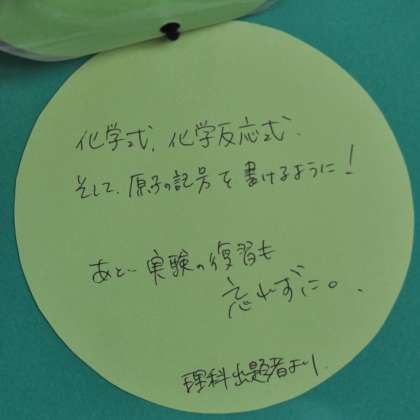 化学式、化学反応式、
そして、原子の記号を書けるように!
あと…実験の復習も
忘れずに。
理科出題者より